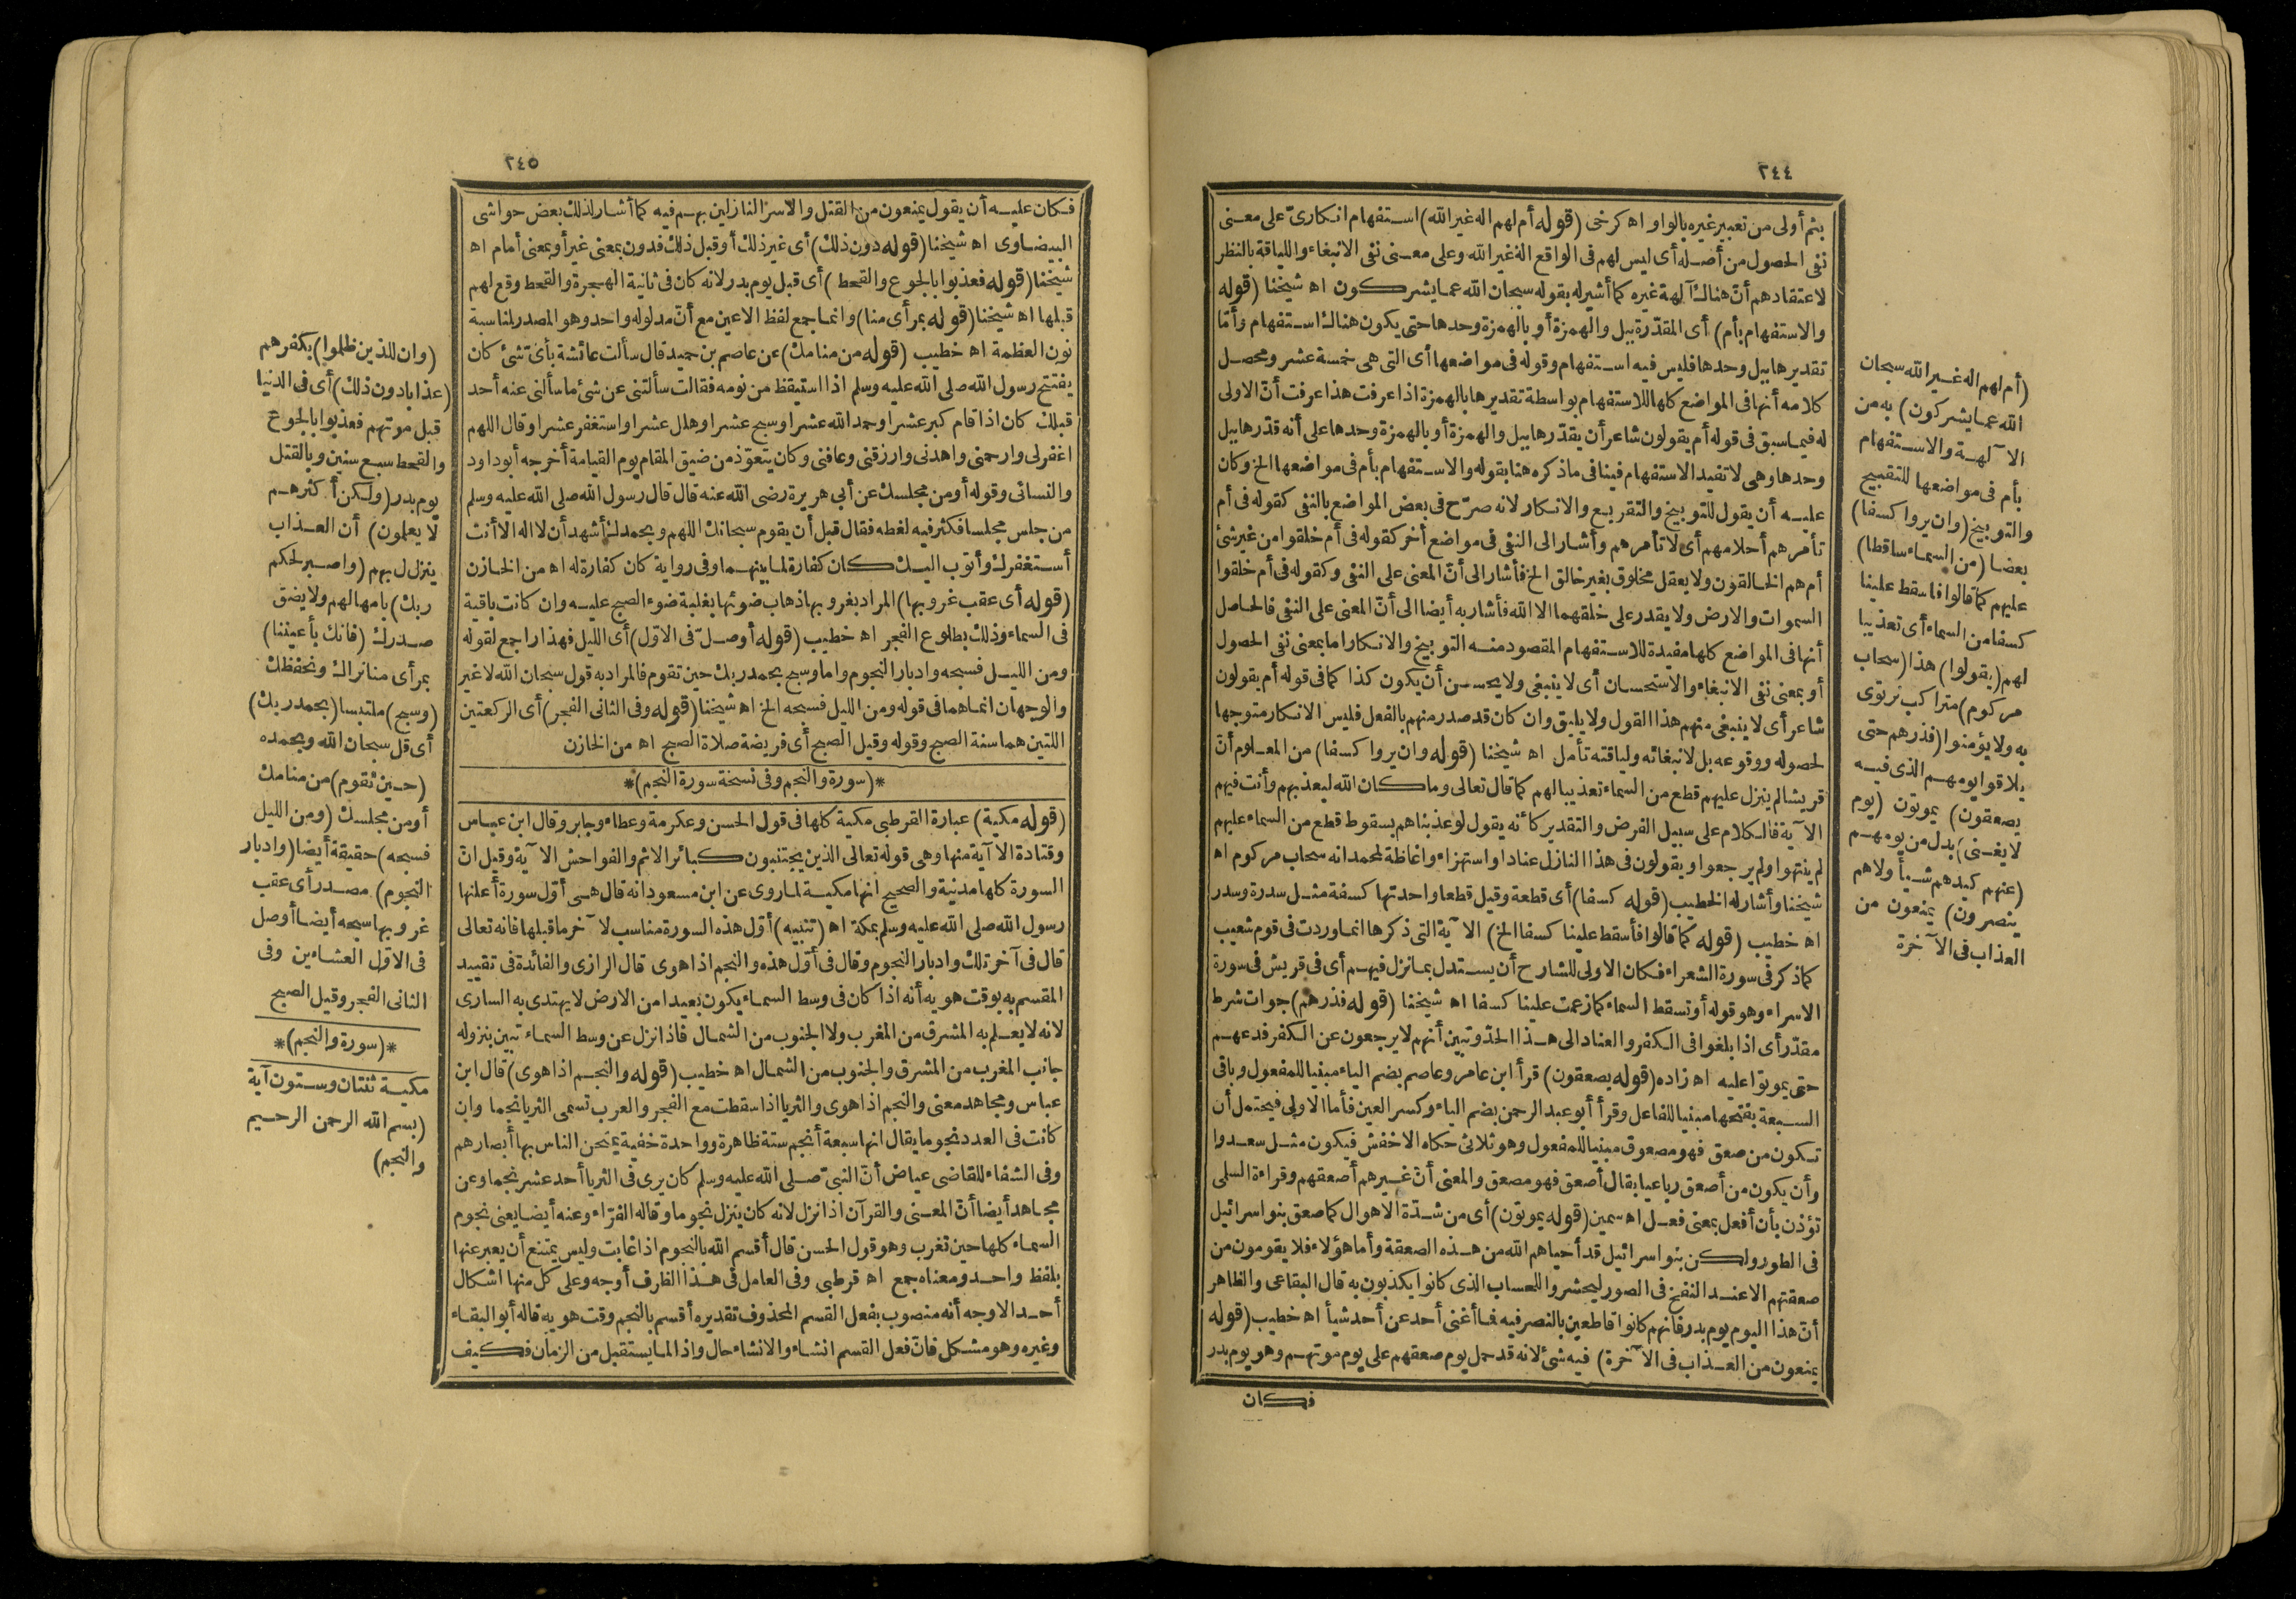 ٢٤٤
بثم أولى من تعبير غيره بالواو اه كرخى (قوله أم لهم اله غير الله) استفهام انكارىّ على معنى
نفى الحصول من أصله أى ليس لهم فى الواقع اله غير الله وعلى معنى نفى الانبغاء واللياقة بالنظر
لاعتقادهم أنّ هناك آلهة غيره كما أشير له بقوله سبحان الله عما يشركون اه شيخنا (قوله
والاستفهام بأم) أى المقدّرة ببل والهمزة أو بالهمزة وحدها حتى يكون هناك استفهام وأمّا
تقديرها ببل وحدها فليس فيه استفهام وقوله فى مواضعها أى التى هى خمسة عشر ومحصل
كلامه أنها فى المواضع كلها للاستفهام بواسطة تقديرها بالهمزة اذا عرفت هذا عرفت أنّ الاولى
له فيما سبق فى قوله أم يقولون شاعر أن يقدّرها ببل والهمزة أو بالهمزة وحدها على أنه قدّرها ببل
وحدها وهى لا تفيد الاستفهام فينافى ما ذكره هنا بقوله والاستفهام بأم فى مواضعها الخ وكان
عليه أن يقول للتوبيخ والتقريع والانكار لانه صرّح فى بعض المواضع بالنفى كقوله فى أم
تأمرهم أحلامهم أى لا تأمرهم وأشار الى النفى فى مواضع أخر كقوله فى أم خلقوا من غير شئ
أم هم الخالقون ولا يعقل مخلوق بغير خالق الخ فأشار الى أنّ المعنى على النفى وكقوله فى أم خلقوا
السموات والارض ولا يقدر على خلقهما الا الله فأشار به أيضا الى أنّ المعنى على النفى فالحاصل
أنها فى المواضع كلها مفيدة للاستفهام المقصود منه التوبيخ والانكار اما بمعنى نفى الحصول
أو بمعنى نفى الانبغاء والاستحسان أى لا ينبغى ولا يحسن أن يكون كذا كما فى قوله أم يقولون
شاعر أى لا ينبغى منهم هذا القول ولا يليق وان كان قد صدر منهم بالفعل فليس الانكار متوجها
لحصوله ووقوعه بل لانبغائه ولياقته تأمل اه شيخنا (قوله وان يروا كسفا) من المعلوم أنّ
قريشا لم ينزل عليهم قطع من السماء تعذيبا لهم كما قال تعالى وما كان الله ليعذبهم وأنت فيهم
الآية فالكلام على سبيل الفرض والتقدير كأنه يقول لو عذبناهم بسقوط قطع من السماء عليهم
لم ينتهوا ولم يرجعوا ويقولون فى هذا النازل عنادا واستهزاء واغاظة لمحمد انه سحاب مركوم اه
شيخنا وأشار له الخطيب (قوله كسفا) أى قطعة وقيل قطعا واحدتها كسفة مثل سدرة وسدر
اه خطيب (قوله كما قالوا فأسقط علينا كسفا الخ) الآية التى ذكرها انما وردت فى قوم شعيب
كما ذكر فى سورة الشعراء فكان الاولى للشارح أن يستدل بما نزل فيهم أى فى قريش فى سورة
الاسراء وهو قوله أو تسقط السماء كما زعمت علينا كسفا اه شيخنا (قوله فذرهم) جواب شرط
مقدّر أى اذا بلغوا فى الكفر والعناد الى هذا الحدّ وتبين أنهم لا يرجعون عن الكفر فدعهم
حتى يموتوا عليه اه زاده (قوله يصعقون) قرأ ابن عامر وعاصم بضم الياء مبنيا للمفعول وباقى
السبعة بفتحها مبنيا للفاعل وقرأ أبو عبد الرحمن بضم الياء وكسر العين فأما الاولى فيحتمل أن
تكون من صعق فهو مصعوق مبنيا للمفعول وهو ثلاثى حكاه الاخفش فيكون مثل سعدوا
وأن يكون من أصعق رباعيا يقال أصعق فهو مصعق والمعنى أنّ غيرهم أصعقهم وقراءة السلمى
تؤذن بأن أفعل بمعنى فعل اه سمين (قوله يموتون) أى من شدّة الاهوال كما صعق بنو اسرائيل
فى الطور ولكن بنو اسرائيل قد أحياهم الله من هذه الصعقة وأما هؤلاء فلا يقومون من
صعقتهم الا عند النفخ فى الصور ليحشروا للحساب الذى كانوا يكذبون به قال البقاعى والظاهر
أنّ هذا اليوم يوم بدر فانهم كانوا قاطعين بالنصر فيه فما أغنى أحد عن أحد شيأ اه خطيب (قوله
يمنعون من العذاب فى الآخرة) فيه شئ لانه قد حمل يوم صعقهم على يوم موتهم وهو يوم بدر
فكان
(أم لهم اله غير الله سبحان
الله عما يشركون) به من
الآلهة والاستفهام
بأم فى مواضعها للتقبيح
والتوبيخ (وان يروا كسفا)
بعضا (من السماء ساقطا)
عليهم كما قالوا فاسقط علينا
كسفا من السماء أى تعذيبا
لهم (يقولوا) هذا (سحاب
مركوم) متراكب نرتوى
به ولا يؤمنوا (فذرهم حتى
يلاقوا يومهم الذى فيه
يصعقون) يموتون (يوم
لا يغنى) بدل من يومهم
(عنهم كيدهم شيأ ولا هم
ينصرون) يمنعون من
العذاب فى الآخرة
٢٤٥
فكان عليه أن يقول يمنعون من القتل والاسر النازلين بهم فيه كما أشار لذلك بعض حواشى
البيضاوى اه شيخنا (قوله دون ذلك) أى غير ذلك أو قبل ذلك فدون بمعنى غير أو بمعنى أمام اه
شيخنا (قوله فعذبوا بالجوع والقحط) أى قبل يوم بدر لانه كان فى ثانية الهجرة والقحط وقع لهم
قبلها اه شيخنا (قوله بمرأى منا) وانما جمع لفظ الاعين مع أنّ مدلوله واحد وهو المصدر لمناسبة
نون العظمة اه خطيب (قوله من منامك) عن عاصم بن حميد قال سألت عائشة بأىّ شئ كان
يفتتح رسول الله صلى الله عليه وسلم اذا استيقظ من نومه فقالت سألتنى عن شئ ما سألنى عنه أحد
قبلك كان اذا قام كبر عشرا وحمد الله عشرا وسبح عشرا وهلل عشرا واستغفر عشرا وقال اللهم
اغفر لى وارحمنى واهدنى وارزقنى وعافنى وكان يتعوّذ من ضيق المقام يوم القيامة أخرجه أبو داود
والنسائى وقوله أو من مجلسك عن أبى هريرة رضى الله عنه قال قال رسول الله صلى الله عليه وسلم
من جلس مجلسا فكثر فيه لغطه فقال قبل أن يقوم سبحانك اللهم وبحمدك أشهد أن لا اله الا أنت
أستغفرك وأتوب اليك كان كفارة لما بينهما وفى رواية كان كفارة له اه من الخازن
(قوله أى عقب غروبها) المراد بغروبها ذهاب ضوئها بغلبة ضوء الصبح عليه وان كانت باقية
فى السماء وذلك بطلوع الفجر اه خطيب (قوله أو صلّ فى الاوّل) أى الليل فهذا راجع لقوله
ومن الليل فسبحه وادبار النجوم واما وسبح بحمد ربك حين تقوم فالمراد به قول سبحان الله لا غير
والوجهان انما هما فى قوله ومن الليل فسبحه الخ اه شيخنا (قوله وفى الثانى الفجر) أى الركعتين
اللتين هما سنة الصبح وقوله وقيل الصبح أى فريضة صلاة الصبح اه من الخازن
*(سورة والنجم وفى نسخة سورة النجم)*
(قوله مكية) عبارة القرطبى مكية كلها فى قول الحسن وعكرمة وعطاء وجابر وقال ابن عباس
وقتادة الا آية منها وهى قوله تعالى الذين يجتنبون كبائر الاثم والفواحش الآية وقيل انّ
السورة كلها مدنية والصحيح انها مكية لما روى عن ابن مسعود انه قال هى أوّل سورة أعلنها
رسول الله صلى الله عليه وسلم بمكة اه (تنبيه) أوّل هذه السورة مناسب لآخر ما قبلها فانه تعالى
قال فى آخر تلك وادبار النجوم وقال فى أوّل هذه والنجم اذا هوى قال الرازى والفائدة فى تقييد
المقسم به بوقت هويه أنه اذا كان فى وسط السماء يكون بعيدا من الارض لا يهتدى به السارى
لانه لا يعلم به المشرق من المغرب ولا الجنوب من الشمال فاذا نزل عن وسط السماء تبين بنزوله
جانب المغرب من المشرق والجنوب من الشمال اه خطيب (قوله والنجم اذا هوى) قال ابن
عباس ومجاهد معنى والنجم اذا هوى والثريا اذا سقطت مع الفجر والعرب تسمى الثريا نجما وان
كانت فى العدد نجوما يقال انها سبعة أنجم ستة ظاهرة وواحدة خفية يمتحن الناس بها أبصارهم
وفى الشفاء للقاضى عياض أنّ النبىّ صلى الله عليه وسلم كان يرى فى الثريا أحد عشر نجما وعن
مجاهد أيضا أنّ المعنى والقرآن اذا نزل لانه كان ينزل نجوما وقاله الفرّاء وعنه أيضا يعنى نجوم
السماء كلها حين تغرب وهو قول الحسن قال أقسم الله بالنجوم اذا غابت وليس يمتنع أن يعبر عنها
بلفظ واحد ومعناه جمع اه قرطبى وفى العامل فى هذا الظرف أوجه وعلى كل منها اشكال
أحد الاوجه أنه منصوب بفعل القسم المحذوف تقديره أقسم بالنجم وقت هويه قاله أبو البقاء
وغيره وهو مشكل فانّ فعل القسم انشاء والانشاء حال واذا لما يستقبل من الزمان فكيف
(وان للذين ظلموا) بكفرهم
(عذابا دون ذلك) أى فى الدنيا
قبل موتهم فعذبوا بالجوع
والقحط سبع سنين وبالقتل
يوم بدر (ولكن أكثرهم
لا يعلمون) أن العذاب
ينزل بهم (واصبر لحكم
ربك) بامهالهم ولا يضق
صدرك (فانك بأعيننا)
بمرأى منا نراك ونحفظك
(وسبح) ملتبسا (بحمد ربك)
أى قل سبحان الله وبحمده
(حين تقوم) من منامك
أو من مجلسك (ومن الليل
فسبحه) حقيقة أيضا (وادبار
النجوم) مصدر أى عقب
غروبها سبحه أيضا أو صل
فى الاوّل العشاءين وفى
الثانى الفجر وقيل الصبح
*(سورة والنجم)*
مكية ثنتان وستون آية
(بسم الله الرحمن الرحيم
والنجم)